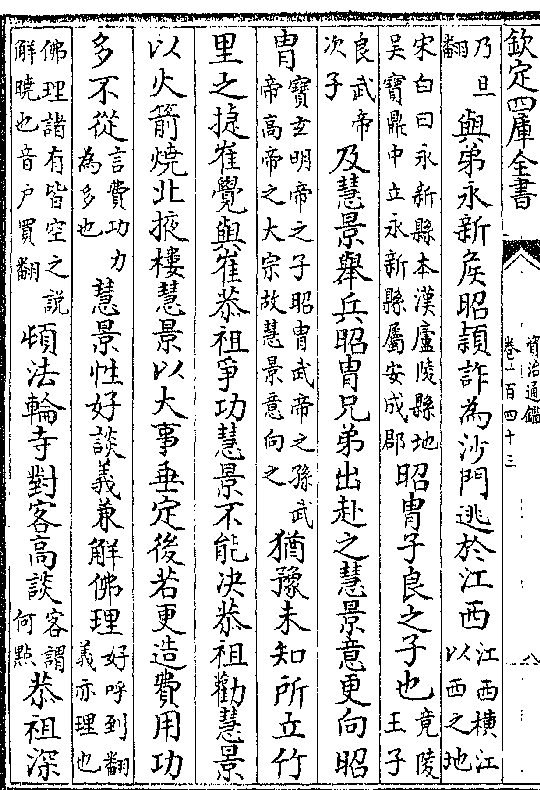 欽定四庫全書
資治通鑑
卷一百四十三
八
乃旦翻與弟永新侯昭頴詐為沙門逃於江西江西橫江以西之地
宋白曰永新縣本漢廬陵縣地吳寶鼎中立永新縣屬安成郡昭胄子良之子也竟陵王子
良武帝次子及慧景舉兵昭胄兄弟出赴之慧景意更向昭
胄寶玄明帝之子昭胄武帝之孫武帝高帝之大宗故慧景意向之猶豫未知所立竹
里之捷崔覺與崔恭祖爭功慧景不能决恭祖勸慧景
以火箭燒北掖樓慧景以大事垂定後若更造費用功
多不從言費功力為多也慧景性好談義兼解佛理好呼到翻義亦理也
佛理諸有皆空之說解曉也音戶買翻頓法輪寺對客高談客謂何點恭祖深